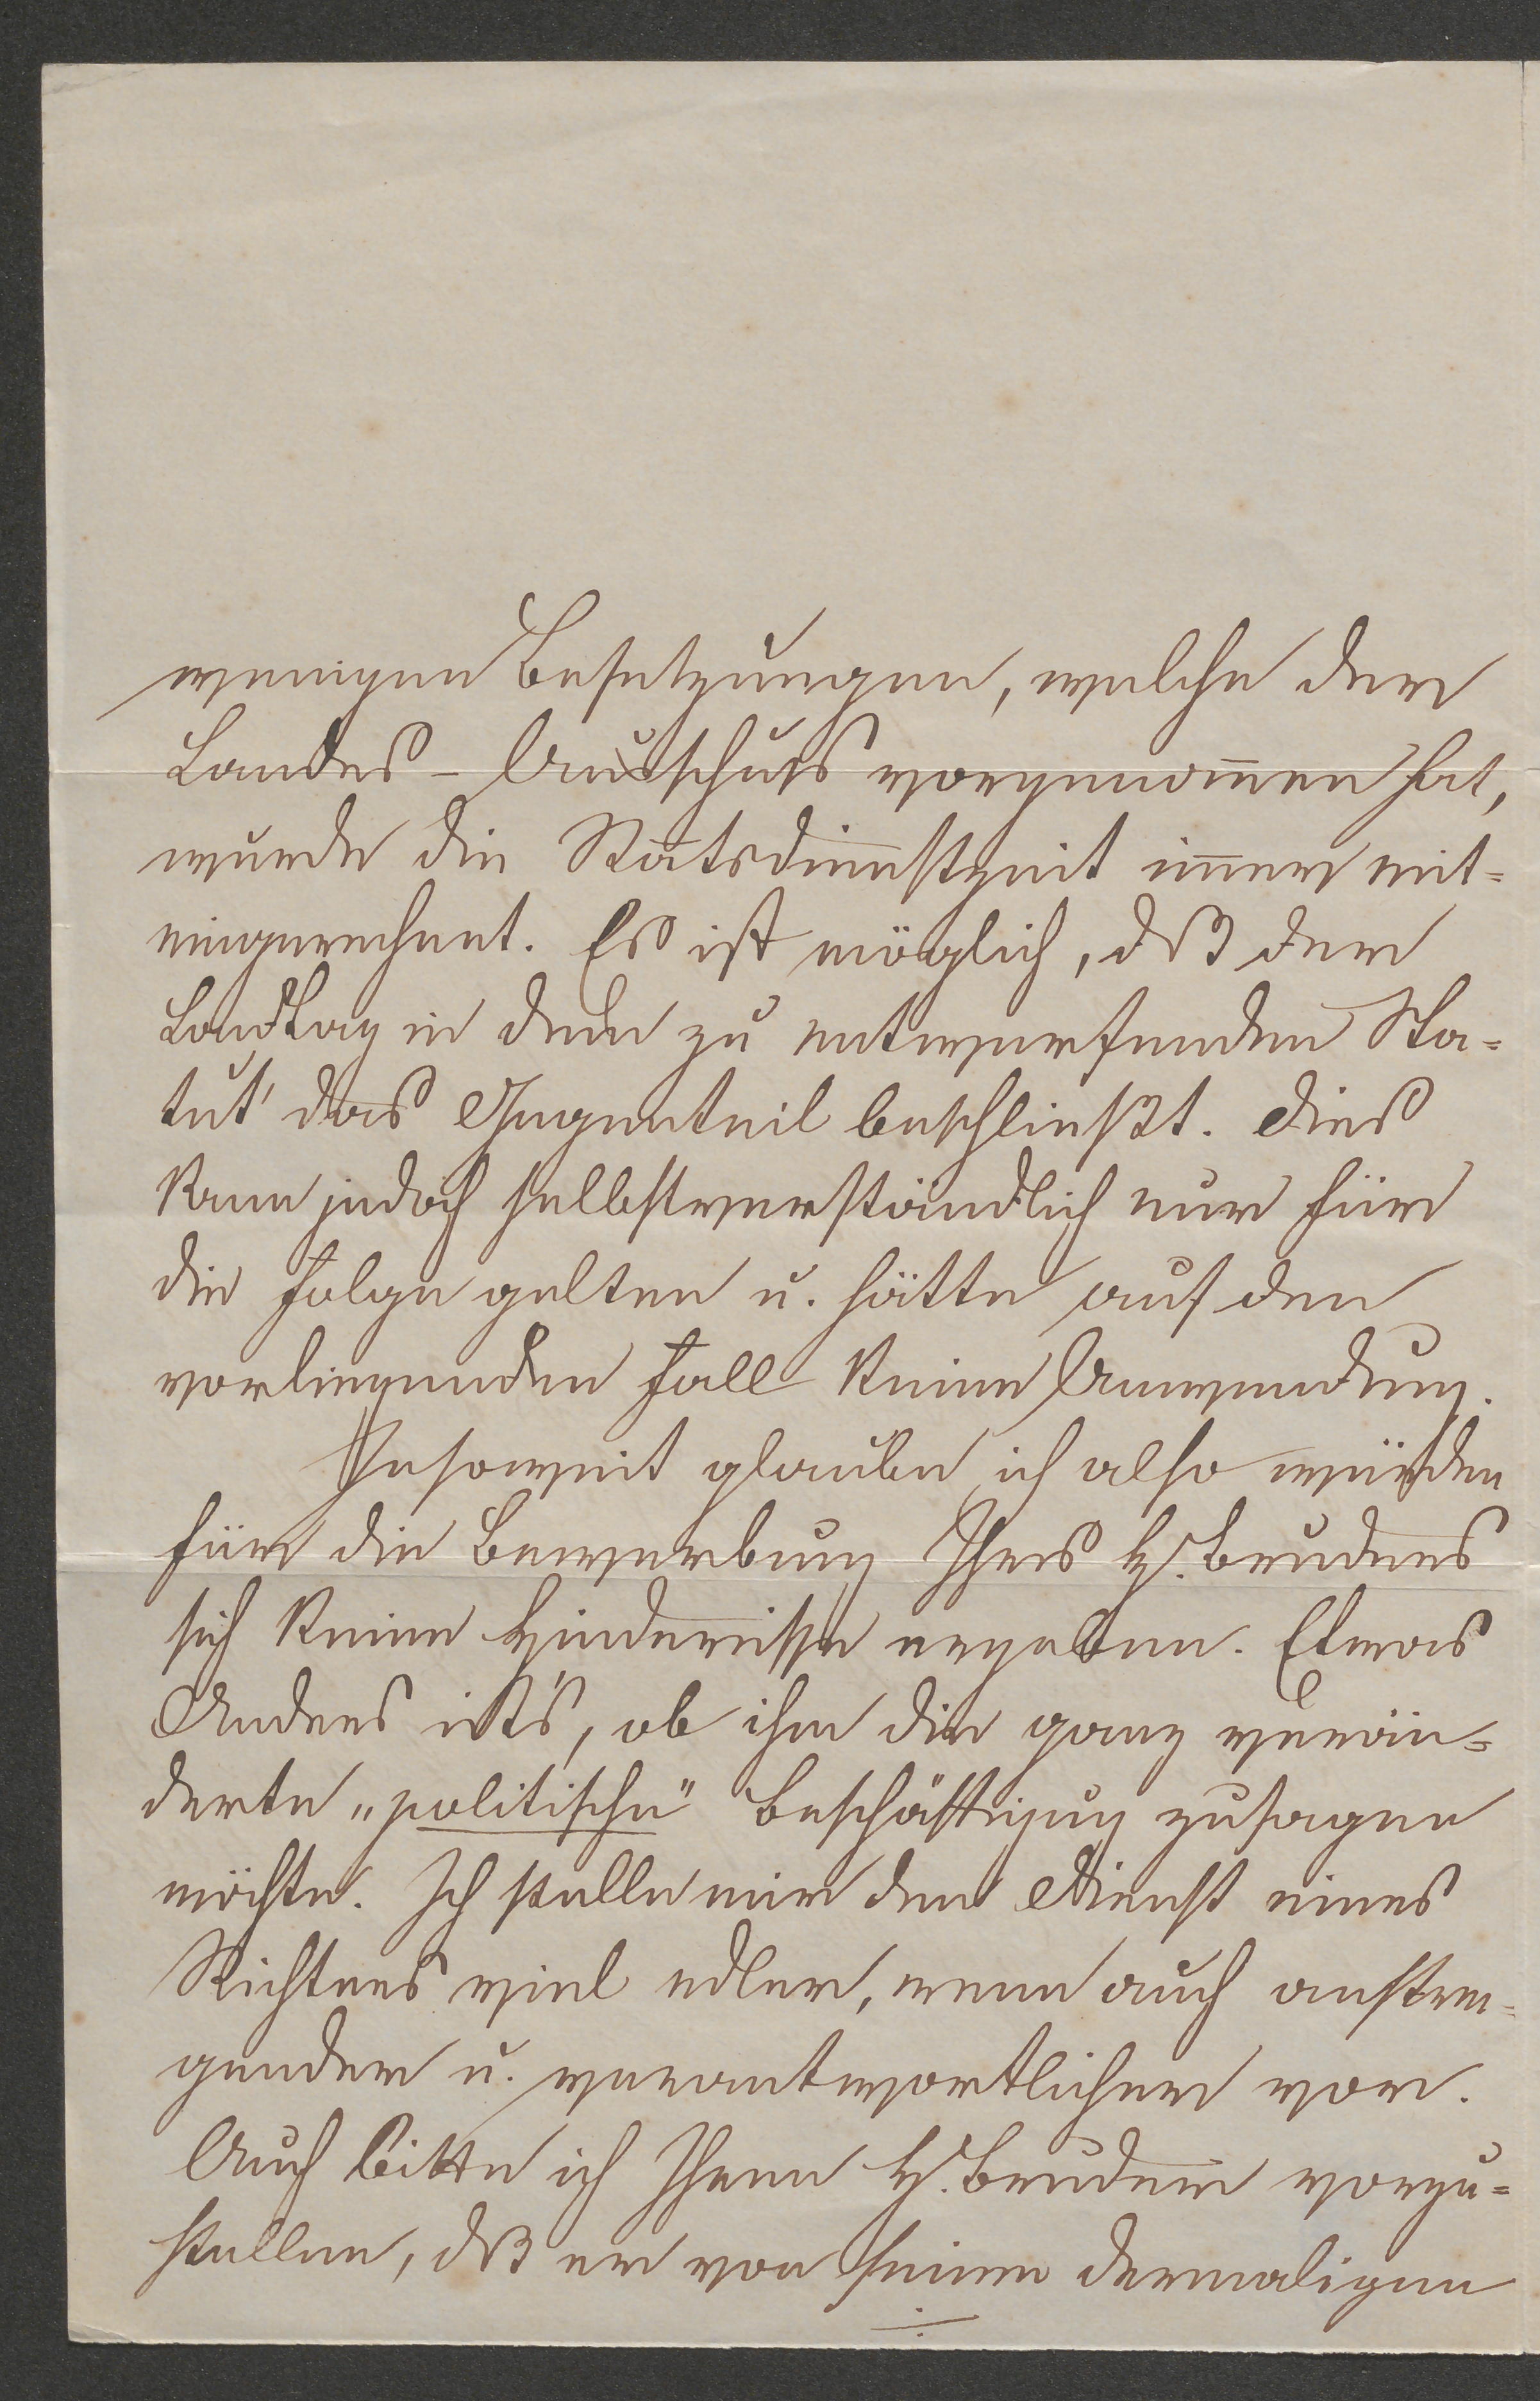 wenigen Besetzungen, welche der
Landes-Ausschuss vorgenom̄en hat,
wurde die Statsdienstzeit im̄er mit=
eingerechnet. Es ist möglich, dß der
Landtag in dem zu entwerfenden Sta=
tut das Gegenteil beschließt. Dies
kann jedoch selbstverständlich nur für
die Folge gelten u. hätte auf den
vorliegenden Fall keine Anwendung.
Insoweit glaube ich also würden
für die Bewerbung Ihres H. Bruders
sich keine Hindernisse ergeben. Etwas
Anders ist's, ob ihm die ganz verän=
derte „politische" Beschäftigung zusagen
möchte. Ich stelle mir den Dienst eines
Richters viel edler, wenn auch anstren=
gender u. verantwortlicher vor.
Auch bitte ich Ihren H. Bruder vorzu=
stellen, dß er von seinem dermaligen